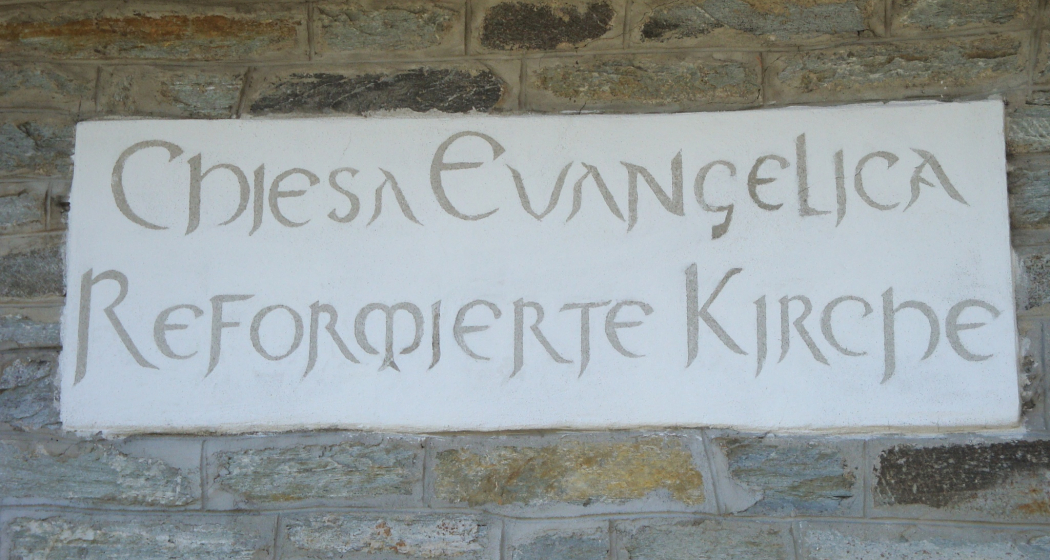 Chiesa Evangelica
Reformierte Kirche